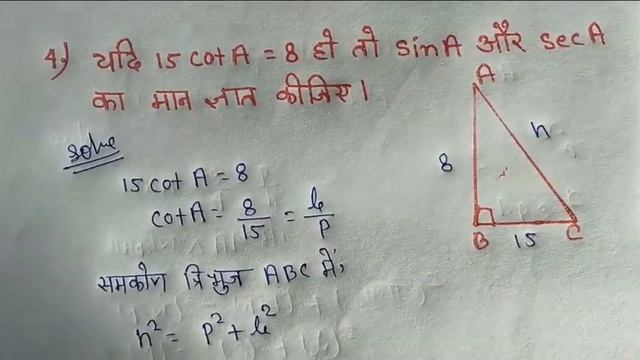 4.) यदि 15 cotA = 8 हो तो sinA और secA
का मान ज्ञात कीजिए।
solve
15 cot A = 8
cotA = 8/15 = b/P
समकोण त्रिभुज ABC में,
h² = P² + b²
A
8
h
B
15
C